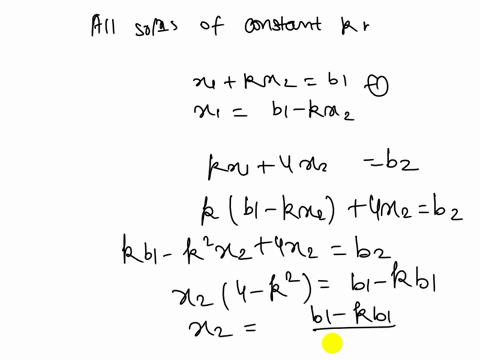 All solns of constant k,
x₁ + kx₂ = b1 ①
x₁ = b1 - kx₂
kx₁ + 4x₂ = b2
k (b1 - kx₂) + 4x₂ = b2
kb1 - k²x₂ + 4x₂ = b2
x₂ (4 - k²) = b1 - kb1
x₂ = b1 - kb1